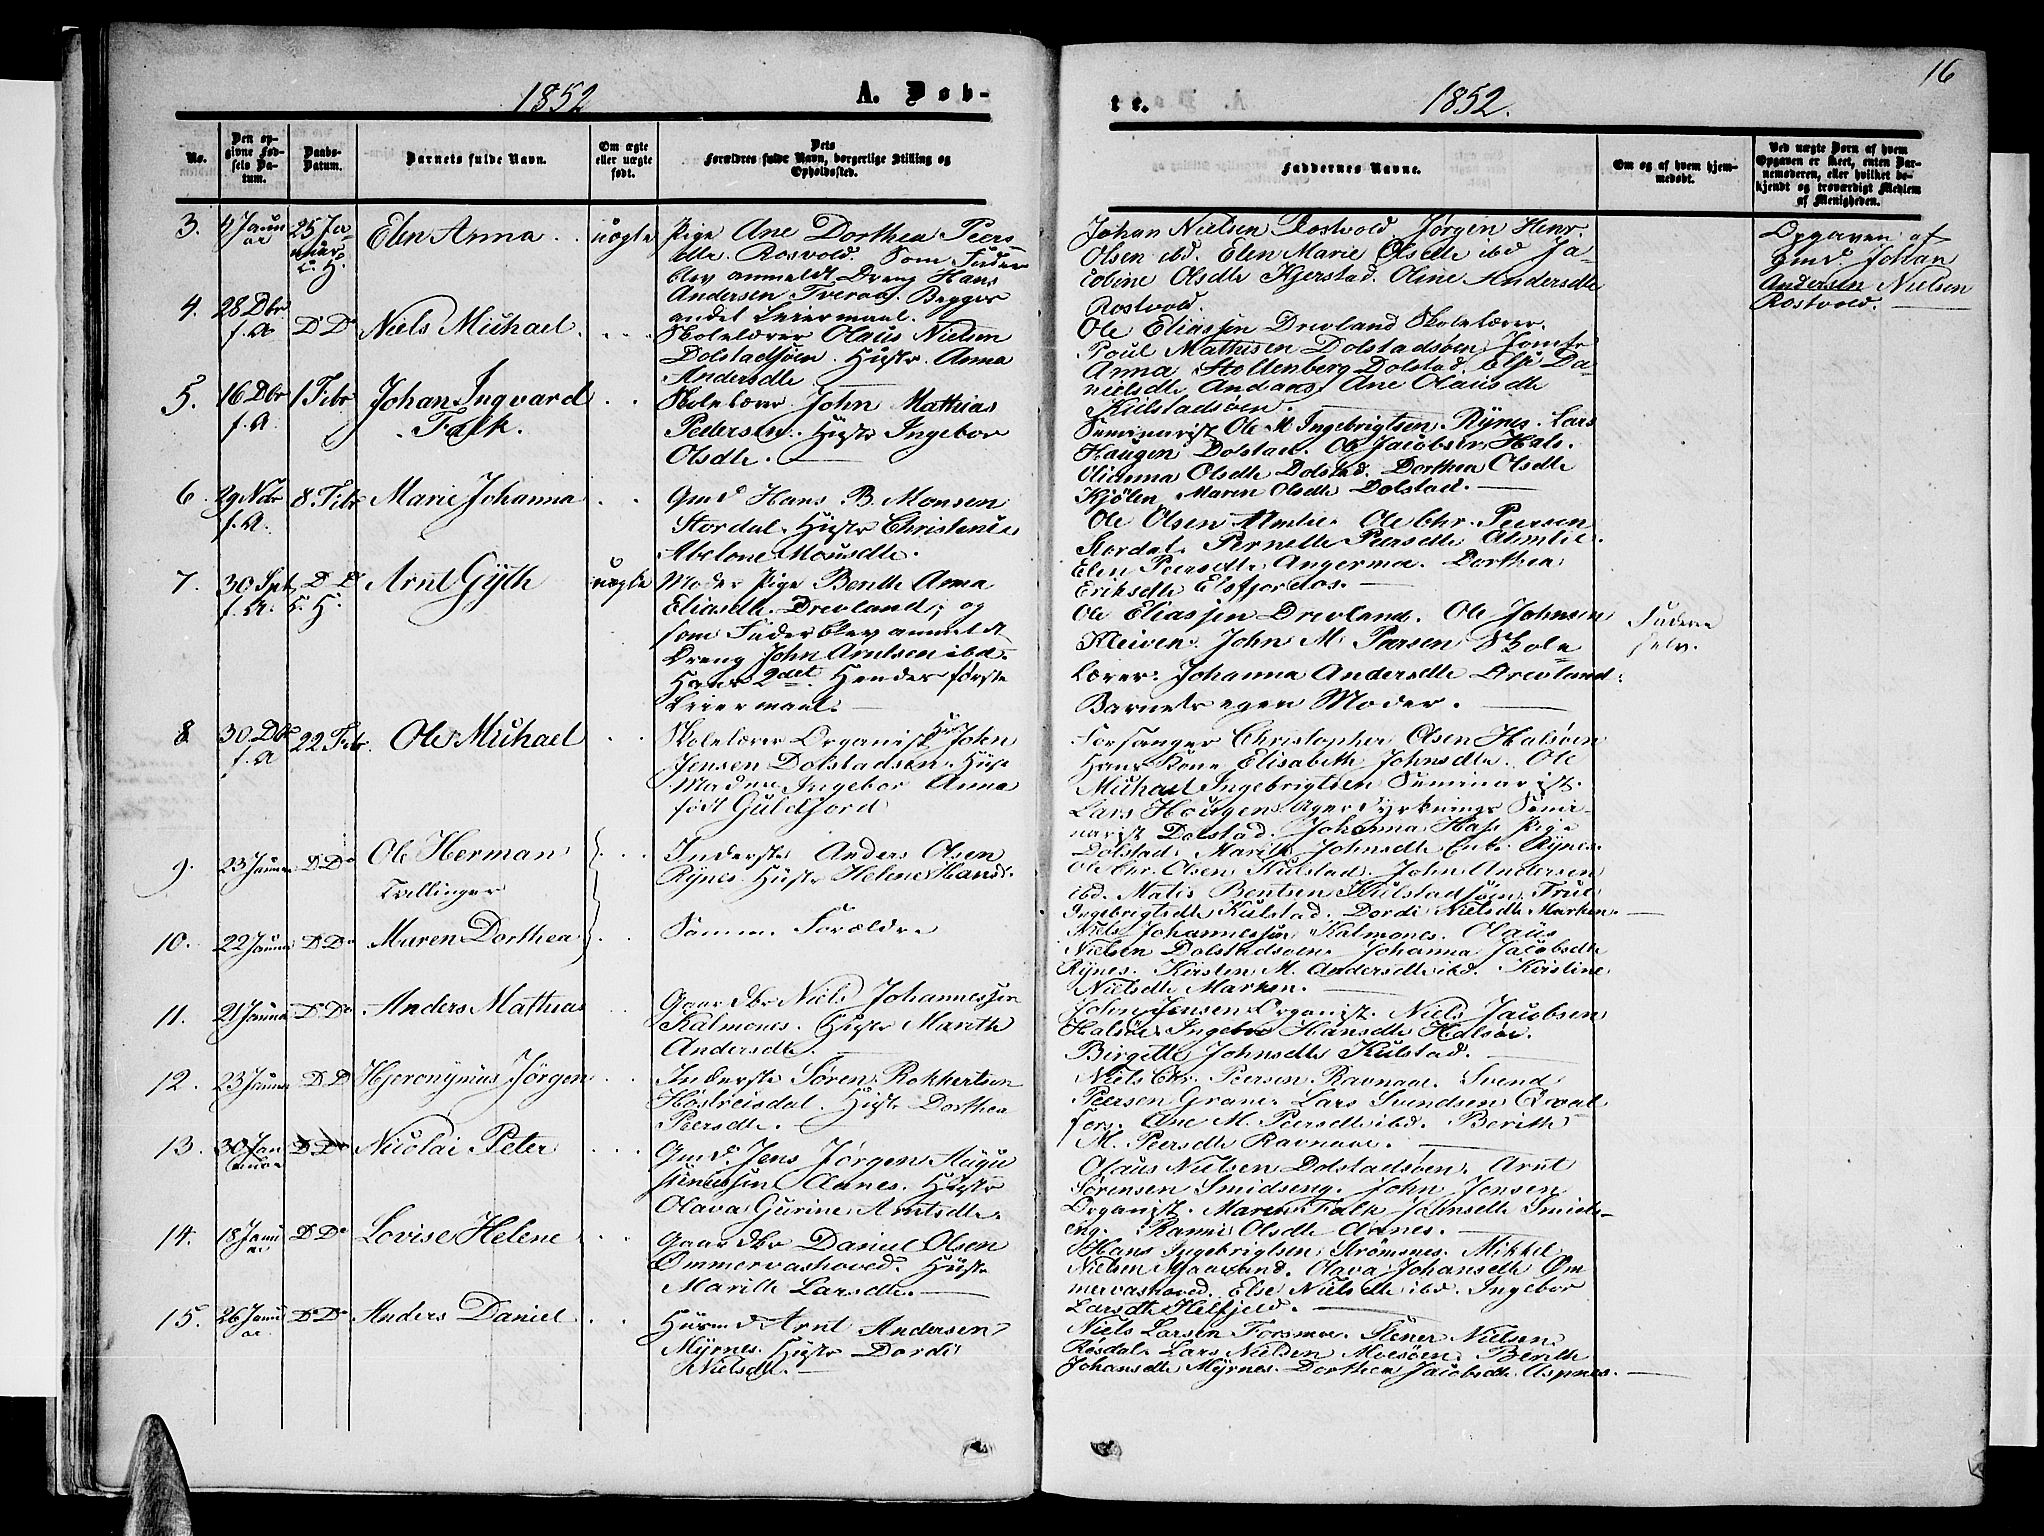 1852
A. Døb-
No.
Den op-
givne Fød-
sels Da-
tum.
Daabs-
Datum.
Barnets fulde Navn.
Om ægte
eller uægte
født.
Dets
Forældres fulde Navn, borgerlige Stilling og
Opholdssted.
3. 4 Janu
ar 25 Ja-
nuar Elen Anna uægte Pige Ane Dorthea Peers
dtr Rosvold. Som Fader
blev anmeldt Dreng Hans
Andersen Tveraa. Begges
andet Leiermaal.
4. 28 Dbr
f. A D Do Niels Michael Skolelærer Olaus Nielsen
Dolstadsøen. Hustr. Anna
Andersdtr
5. 16 Dbr
f. A 1 Febr Johan Ingvard
Falk. Skolelærer John Mathias
Pedersen. Hustr Ingebor
Olsdtr.
6. 29 Nbr
f. A. 8 Febr Marie Johanna Gmd Hans B. Monsen
Stordal. Hustr Christense
Abelone Monsdtr.
7. 30 Spt
f. A. D D
K. H. Arnt Gjth uægte Moder Pige Benthe Anna
Eliasdtr Drevland; og
som Fader blev anmeldt
Dreng John Arntsen ibd.
Hans 2det Hendes første
Leiermaal.
8 30 Dbr
f. A 22 Febr. Ole Michael Skolelærer Organist Hr John
Jensen Dolstadsøen. Hust
Madme Ingebor Anna
født Guldfjord
9. 23 Januar D Do Ole Herman
Tvillinger Inderste Anders Olsen
Rynes. Hustr Helene Hansd.
10. 22 Januar D Do Maren Dorthea Samme Forældre
11. 21 Januar D Do Anders Mathias Gaardbr Niels Johannessen
Kalmones. Hustr Marith
Andersdtr.
12. 23 Januar D D Hjeronymus Jørgen Inderste Søren Rokkertsen
Hostreisdal. Hust. Dorthea
Peersdtr.
13. 30 Jan
uar D Do Nicolai Peter Gmd Jens Jørgen Augu
stinussen Aanes. Hustr
Olava Gurine Arntsdtr.
14. 18 Janu
ar D Do Lovise Helene Gaardbr Daniel Olsen
Ømmervashoved. Hustr
Marithe Larsdtr.
15. 26 Janu
ar D Do Anders Daniel Husmd Arnt Andersen
Myrnes. Hustr Dordi
Nielsdtr.
16
te.
1852.
Faddernes Navne.
Om og af hvem hjem-
medøbt.
Ved uægte Børn af hvem
Opgaven er skeet, enten Bar-
nemoderen, eller hvilket be-
kjendt og troværdigt Medlem
af Menigheden.
Johan Nielsen Rostvold. Jørgen Henr.
Olsen ibd. Elen Marie Olsdtr ibd Ja-
cobine Olsdtr Kjerstad. Oline Andersdtr
Rostvold.
Opgaven af
Gmd. Johan
Andersen Nielsen
Rostvold.
Ole Eliassen Drevland Skolelærer.
Poul Mathisen Dolstadsøen, Jomfr
Anna Stoltenberg Dolstad. Else Da-
nielsdtr Andaas, Ane Olausdtr
Kulstadsøen.
Seminarist Ole M Ingebrigtsen Rynes. Lars
Haugen Dolstad. Ole Jacobsen Hals.
Olianna Olsdtr Dolstad. Dorthea Olsdtr
Kjølen. Maren Olsdtr Dolstad.
Ole Olsen Almlie. Ole Chr. Peersen
Stordal. Pernelle Peersdtr Almlie.
Elen Peersdtr Angermo. Dorthea
Eriksdtr Elsfjordos.
Ole Eliassen Drevland. Ole Johnsen
Kleiven. John M. Peersen Skole
lærer. Johanna Andersdtr Drevland.
Barnets egen Moder.
Faderen
selv.
Forsanger Christopher Olsen Halsøen
Hans Kone Elisabeth Johnsdtr. Ole
Michael Ingebrigtsen Seminarist.
Lars Hougen Ager Dyrknings Semi-
narist Dolstad. Johanna Hass Pige
Dolstad. Marith Johnsdtr Enke Rynes.
Ole Chr. Olsen Kulstad. John Andersen
ibd. Matis Bentsen Kulstadsøen, Trul
Ingebrigtsdtr Kulstad. Dordi Nielsdtr Marken.
Niels Johannessen Kalmones. Olaus
Nielsen Dolstadsøen. Johanna Jacobsdtr
Rynes. Kirsten M. Andersdtr ibd. Kristine
Nielsdtr Marken.
John Jensen Organist. Niels Jacobsen
Halsøe. Ingebor Hansdtr Halsøe.
Birgitte Johnsdtr Kulstad.
Niels Chr. Peersen Ravnaae. Svend
Peersen Grane. Lars Svendsen Qval
fors. Ane M. Peersdtr ibd. Berith
M. Peersdtr Ravnaae.
Olaus Nielsen Dolstadsøen. Arnt
Sørensen Smidseng. John Jensen
Organist. Maren Falk Johnsdtr Smids-
eng. Rannei Olsdtr Aanes.
Hans Ingebrigtsen Strømsnes. Mikkel
Nielsen Mjaavand. Olava Johansdtr Øm
mervashoved. Else Nielsdtr ibd. Ingebor
Larsdtr Helfjeld.
Niels Larsen Forsmoe. Stener Nielsen
Røsdal. Lars Nielsen Moesøen. Berith
Johansdtr Myrnes. Dorthea Jacobsdtr Aspnes.